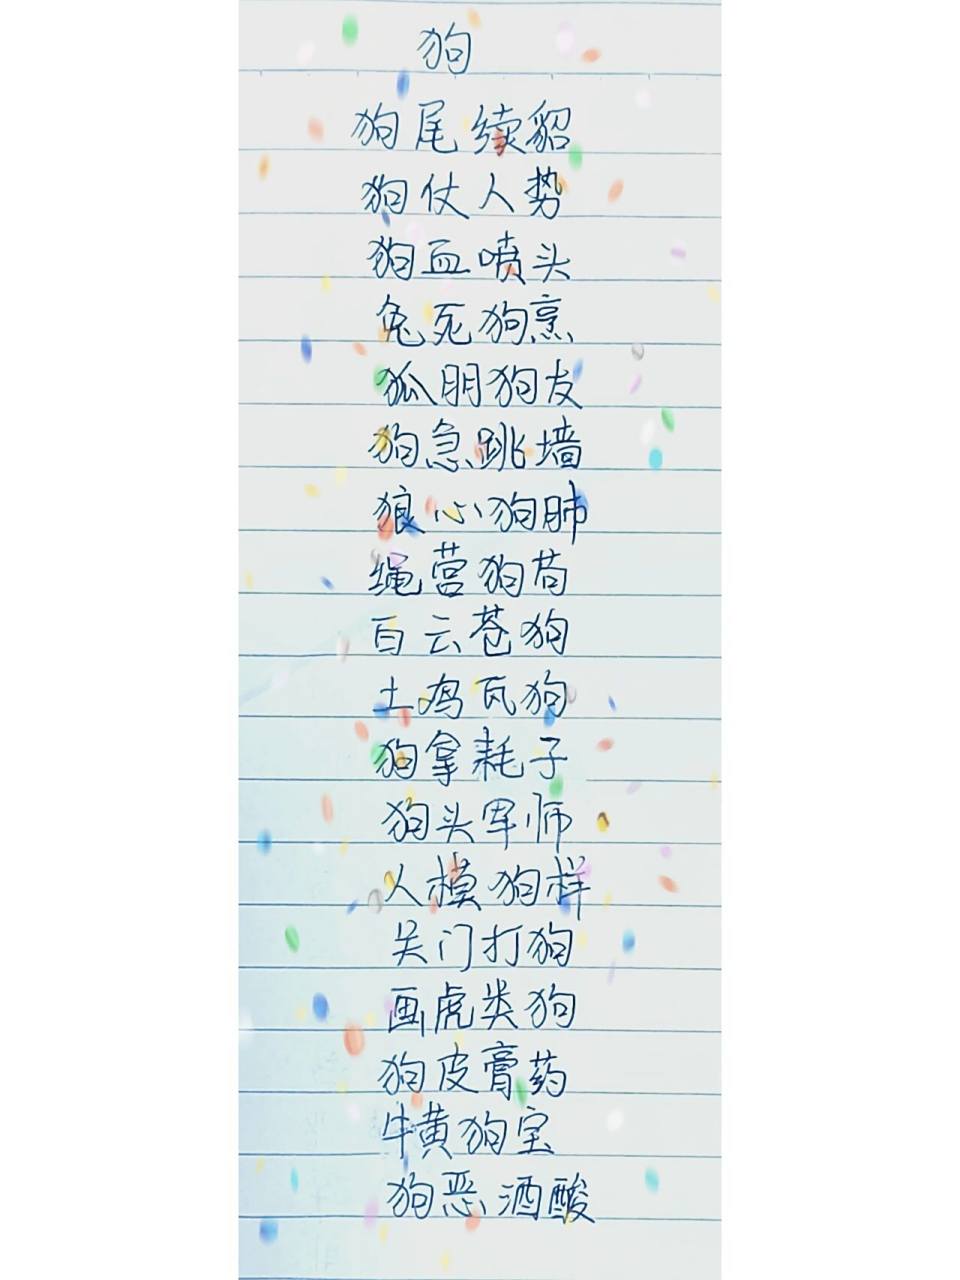 狗
狗尾续貂
狗仗人势
狗血喷头
兔死狗烹
狐朋狗友
狗急跳墙
狼心狗肺
绳营狗苟
百云苍狗
土鸡瓦狗
狗拿耗子
狗头军师
人模狗样
关门打狗
画虎类狗
狗皮膏药
牛黄狗宝
狗恶酒酸